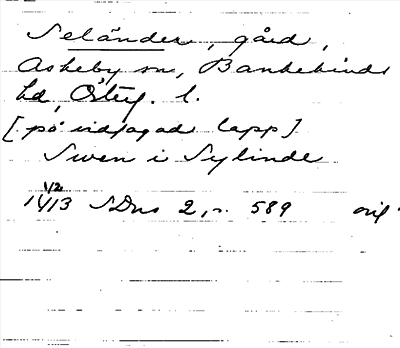 Seländer, gård,
Askeby sn, Bankekinds
hd, Österg. l.
[på vidfogad lapp]
Swen i Sylinde
1/2
1413 SDns 2, s. 589 orig.